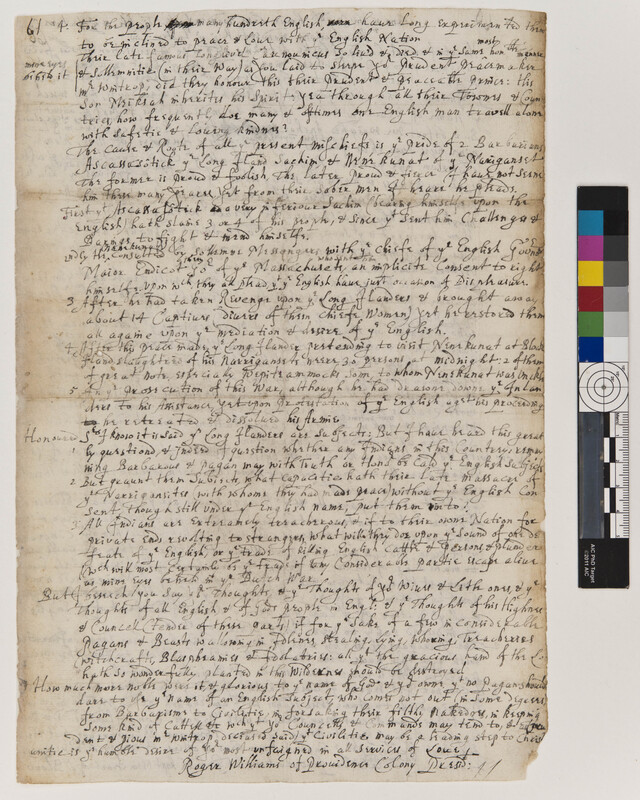 61 4. For the people many hundreth English haue Long experimented them
to be inclined to peace & Loue with yᵉ English Nation
Their late famous Longliued Caunounicus so liud & died & in yᵉ same most honᵇˡᵉ manner
& Sollemnitie (in their way) as you laid to sleepe yoʳ Prudent Peacemaker
mine eyes beheld it
mʳ Wintrop, did they honour this their Prudent & Peaceable Prince: this
Son Meiksah inherites his Spirit. yea through all their Townes & Coun
tries how frequently doe many & oftimes one English man travell alone
with safetie & Loueing kindnes?
The cause & Roote of all yᵉ present mischiefs is yᵉ Pride of 2 Barbarians
Ascassôtick yᵉ Long Iland Sachim & Nenekunat of yᵉ Nariganset
The former is proud & foolish, The later, proud & fierce. I haue not seene
him these many yeares yet from their sober men I heare he pleads.
First yᵗ Ascassôtick a very inferiour Sachim (bearing himselfe upon the
English) hath slaine 3 or 4 of his people, & since yᵗ sent him Challenges &
Darings to fight & mend himselfe.
2ndly He Consulted by Sollemne Messengers with yᵉ Chiefe of yᵉ English Gouʳˢ
Maior Endicot Goʳ of yᵉ Massachusets an implicite Consent to right
himselfe, upon wᶜʰ they all plead yᵗ yᵉ English haue just occasion of Displeasure.
3 After he had taken Revenge upon yᵉ Long Ilanders & brought away
about 14 Captiues (Diuers of them chiefe Women) yet he restored them
all againe upon yᵉ mediation & desire of yᵉ English.
4 After this peace made, yᵉ Long Ilanders pretending to visit Nenekunat at Block
Iland slaughtered of his Narrigansets neere 30 persons, at midnight: 2 of them
of great note, especially Wepiteammocks Son, to whom Nenekunat was uncle
5 In yᵉ prosecution of this War, although he had drawne downe yᵉ Inlan
ders to his Assistance yet upon Protestation of yᵉ English agst his proceeding
he retreated & dissolued his Armie.
Honoured Sʳˢ
1 I know it is said yᵉ Long Ilanders are Subjects: But I haue heard this greatly
questiond, & Indeed I question whether any Indians in this Countrey, remay
ning Barbarous & Pagan may with Truth or Honor be Calld yᵉ English Subjects
2 But graunt them Subjects, what capacitie hath their late massacre of
yᵉ Narrigansets with whome they had made peace) without yᵉ English Con
sent, though still under yᵉ English name, put them into?
3 All Indians are extreamely treacherous, & if to their owne Nation for
private Ends revolting to strangers, what will they doe upon yᵉ Sound of one de
feate of yᵉ English, or yᵉ trade of killing English Cattle & Persons & plunder
(wᶜʰ will most certainly be yᵉ trade if any Considerable partie escape alive
as mine eyes beheld in yᵉ Dutch War.
But I beseech you Say yoʳ Thoughts, & yᵉ Thoughts of yoʳ Wiues & Little ones & yᵉ
Thoughts of all English & of Gods people in Engl: & yᵉ Thoughts of his Highnes
& Councell (Tender of these parts) if for yᵉ sake of a few inconsiderable
Pagans & Beasts wallowing in Idlenes, stealing, lying, whoring, treacheries
Witchcrafts, Blasphemies & Idolatries: all yᵗ the gracious hand of the Lord
hath so wonderfully planted in this Wilderness should be destroyed
How much more noble were it & glorious to yᵉ name of God & yoʳ owne yᵗ no Pagan should
dare to use yᵉ name of an English Subject who comes not out in some degree
from Barbarisme to Civilitie, in forsaking their filthy Nakednes, in keeping
some kind of Cattell & wᶜʰ yet yoʳ Councells & Commands may tend to, & as Pru
dent & pious mʳ Wintrop deceased said, yᵗ Civilitie may be a leading step to Chris
tianitie is yᵉ humble desire of yoʳ most unfeigned in all services of Loue
Roger Williams of Providence Colony Presdᵗ
AIC PhD Target
©2011 AIC